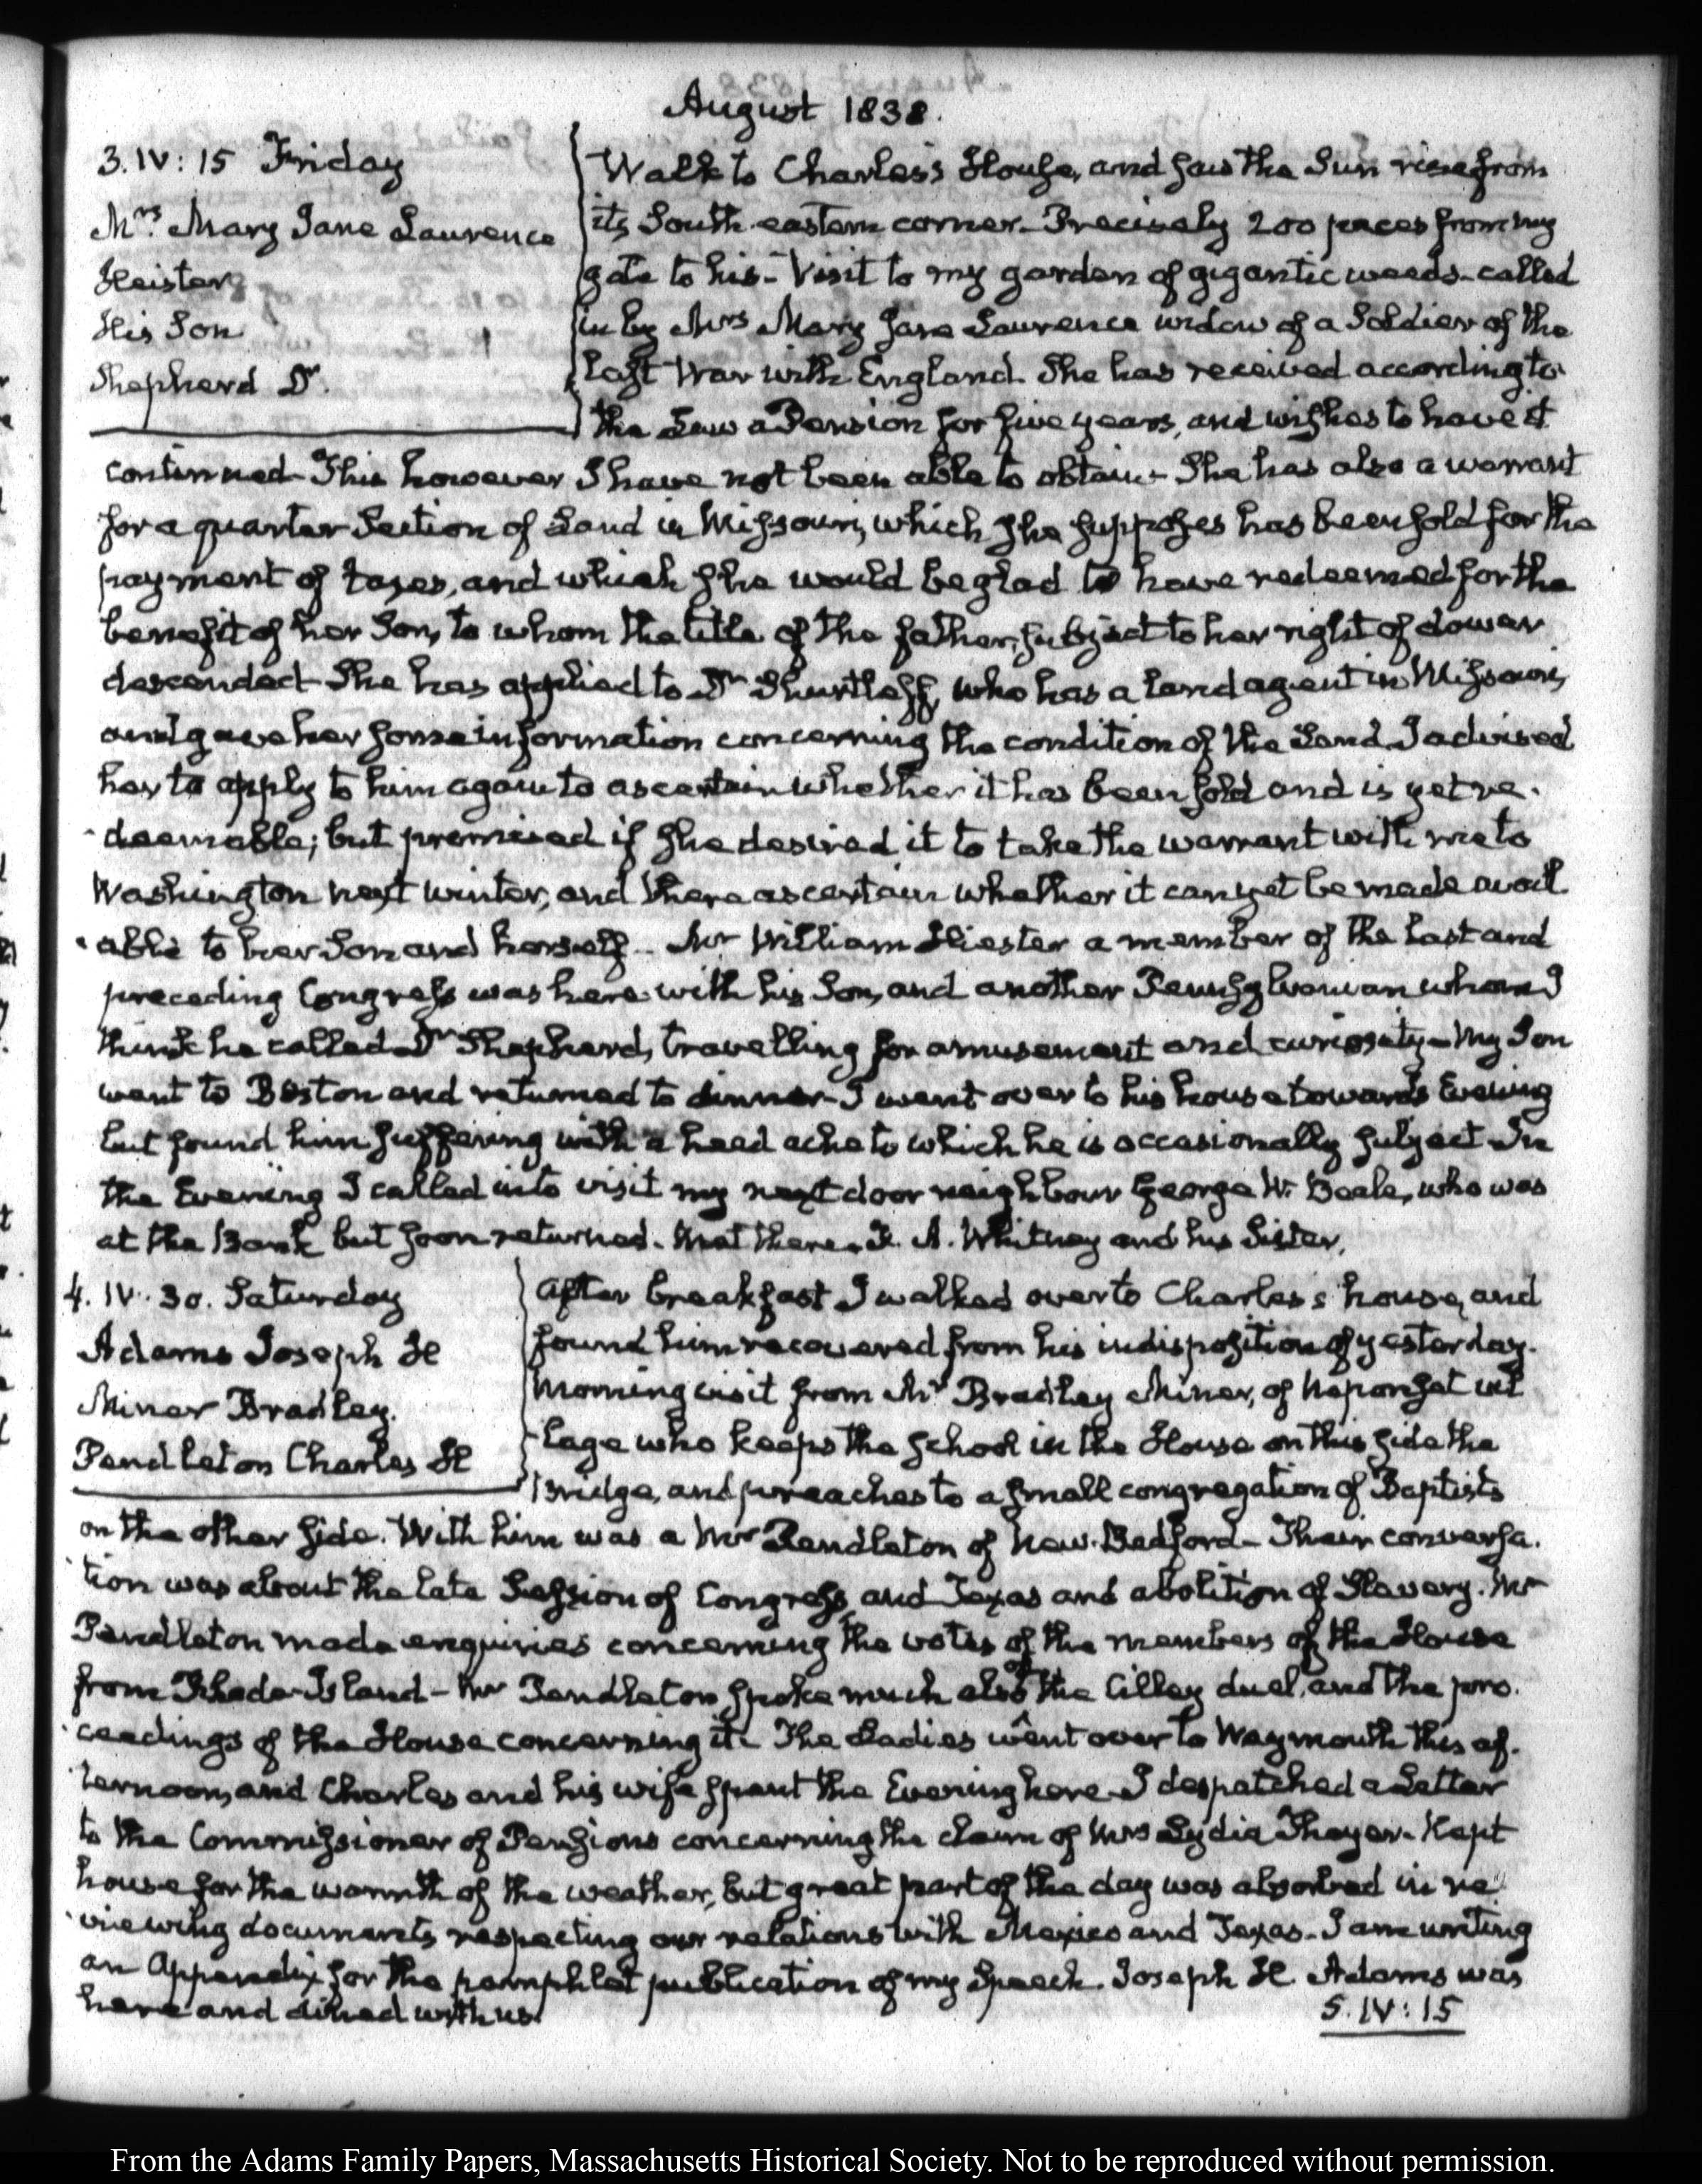 August 1838.
3. IV: 15 Friday
Mrs Mary Jane Laurence
Heister
His Son
Shepherd Dr.
Walk to Charles's House, and saw the Sun rise from
its South-eastern corner. Precisely 200 paces from my
gate to his - Visit to my garden of gigantic weeds - called
in by Mrs Mary Jane Laurence widow of a Soldier of the
last War with England. She has received according to
the Law a Pension for five years, and wishes to have it
continued - This however I have not been able to obtain - She has also a warrant
for a quarter Section of Land in Missouri, which she supposes has been sold for the
payment of taxes, and which she would be glad to have redeemed for the
benefit of her Son, to whom the title of the father, subject to her right of dower
descended - She has applied to Dr Shurtleff, who has a land agent in Missouri,
and gave her some information concerning the condition of the Land. I advised
her to apply to him again to ascertain whether it has been sold and is yet re-
-deemable; but promised if she desired it to take the warrant with me to
Washington next winter, and there ascertain whether it can yet be made avail
-able to her Son and herself - Mr William Hiester a member of the last and
preceding Congress was here with his Son, and another Pennsylvanian whom I
think he called Dr Shepherd, travelling for amusement and curiosity - My Son
went to Boston and returned to dinner - I went over to his house towards Evening
but found him suffering with a head ache to which he is occasionally subject - In
the Evening I called in to visit my next door neighbour George W. Beale, who was
at the Bank but soon returned. Met there F. A. Whitney and his Sister.
4. IV. 30. Saturday
Adams Joseph H
Miner Bradley.
Pendleton Charles H
After breakfast I walked over to Charles's house, and
found him recovered from his indisposition of yesterday.
Morning visit from Mr Bradley Miner, of Neponset vil
-lage who keeps the School in the House on this side the
Bridge, and preaches to a small congregation of Baptists
on the other side. With him was a Mr Pendleton of New-Bedford - Their conversa-
-tion was about the late Session of Congress and Texas and abolition of Slavery. Mr
Pendleton made enquiries concerning the votes of the members of the House
from Rhode-Island - Mr Pendleton spoke much also of the Cilley duel, and the pro-
-ceedings of the House concerning it - The Ladies went over to Weymouth this af-
-ternoon, and Charles and his wife spent the Evening here - I despatched a Letter
to the Commissioner of Pensions concerning the claim of Mrs Lydia Thayer - Kept
house for the warmth of the weather, but great part of the day was absorbed in re
-viewing documents respecting our relations with Mexico and Texas - I am writing
an Appendix for the pamphlet publication of my Speech. Joseph H. Adams was
here and dined with us.
5. IV: 15
From the Adams Family Papers, Massachusetts Historical Society. Not to be reproduced without permission.